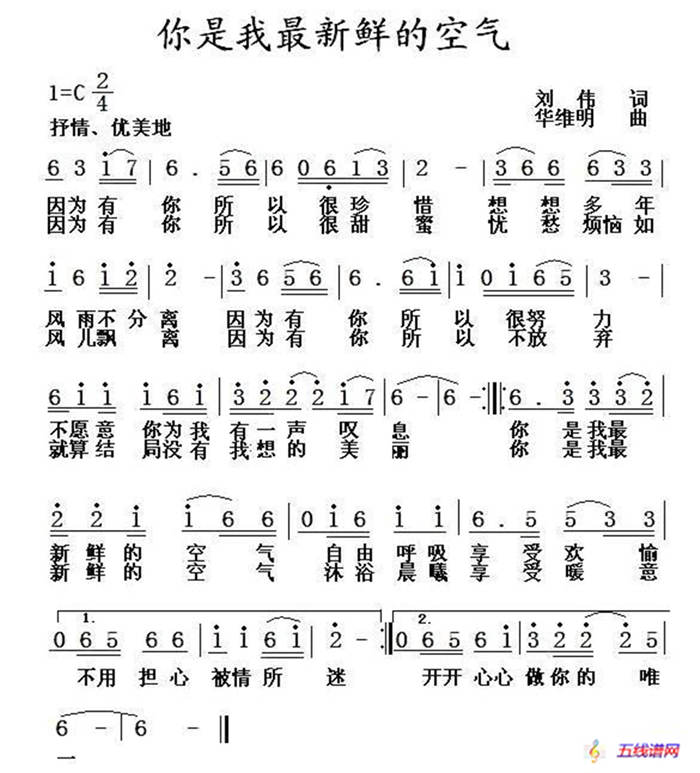 你是我最新鲜的空气
1=C 2/4
刘伟 词
抒情、优美地
华维明 曲
6 3 i 7 | 6 . 5 6 | 6 0 6 1 3 | 2 - | 3 6 6 6 3 3 |
因为有 你 所 以 很珍 惜 想 想 多 年
因为有 你 所 以 很甜 蜜 忧 愁 烦恼如
i 6 i 2 | 2 - | 3 6 5 6 | 6 . 6 i | i 0 i 6 5 | 3 - |
风 雨不 分 离 因为 有 你 所 以 很努 力
风 儿飘 离 因为 有 你 所 以 不放 弃
6 i i i 6 i | 3 2 2 2 i 7 | 6 - | 6 - :||: 6 . 3 3 3 2 |
不愿意 你为我 有一声 叹 息 你 是我最
就算结 局没有 我想的 美 丽 你 是我最
2 2 i i 6 6 | 0 i 6 i i | 6 . 5 5 3 3 |
新 鲜 的 空 气 自由 呼吸 享 受 欢 愉
新 鲜 的 空 气 沐浴 晨曦 享 受 暖 意
1. 2.
0 6 5 6 6 | i i 6 i | 2 - :| 0 6 5 6 6 i | 3 2 2 2 5 |
不用 担心 被情 所 迷 开开 心心 做你 的 唯
6 - | 6 - ||
一
五线谱网